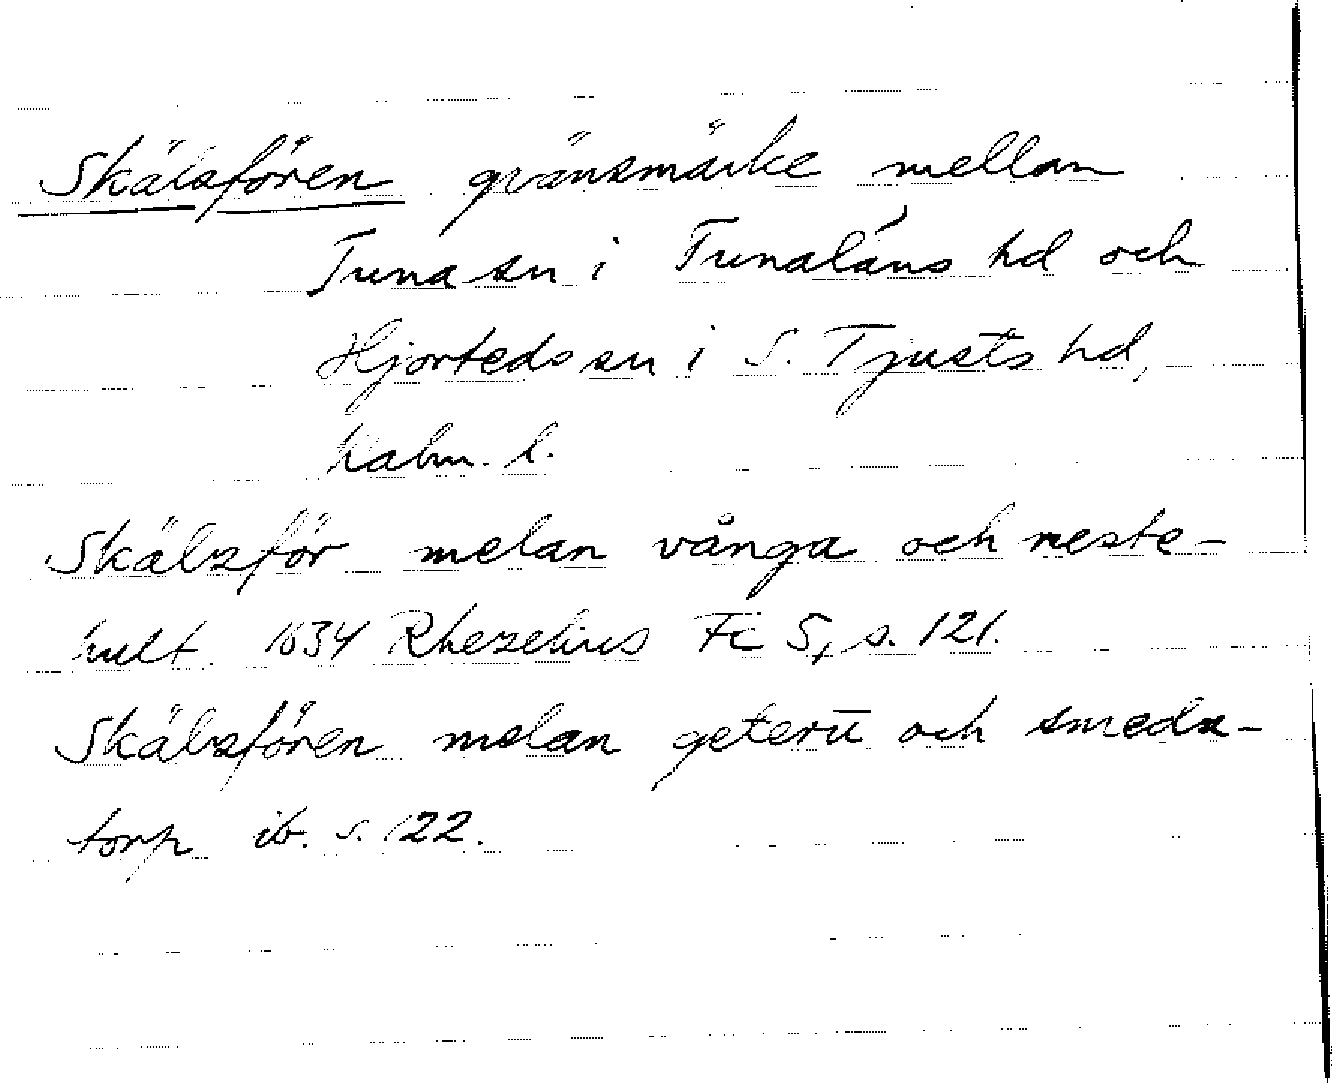 Skälsfören gränsmärke mellan
Tuna sn i Tunaläns hd och
Hjorteds sn i S. Tjusts hd,
Kalm. l.
Skälzför melan vånga och neste-
hult 1634 Rhezelius Fc 5, s. 121.
Skälzfören melan geterū och smedz-
torp ib. s. 122.